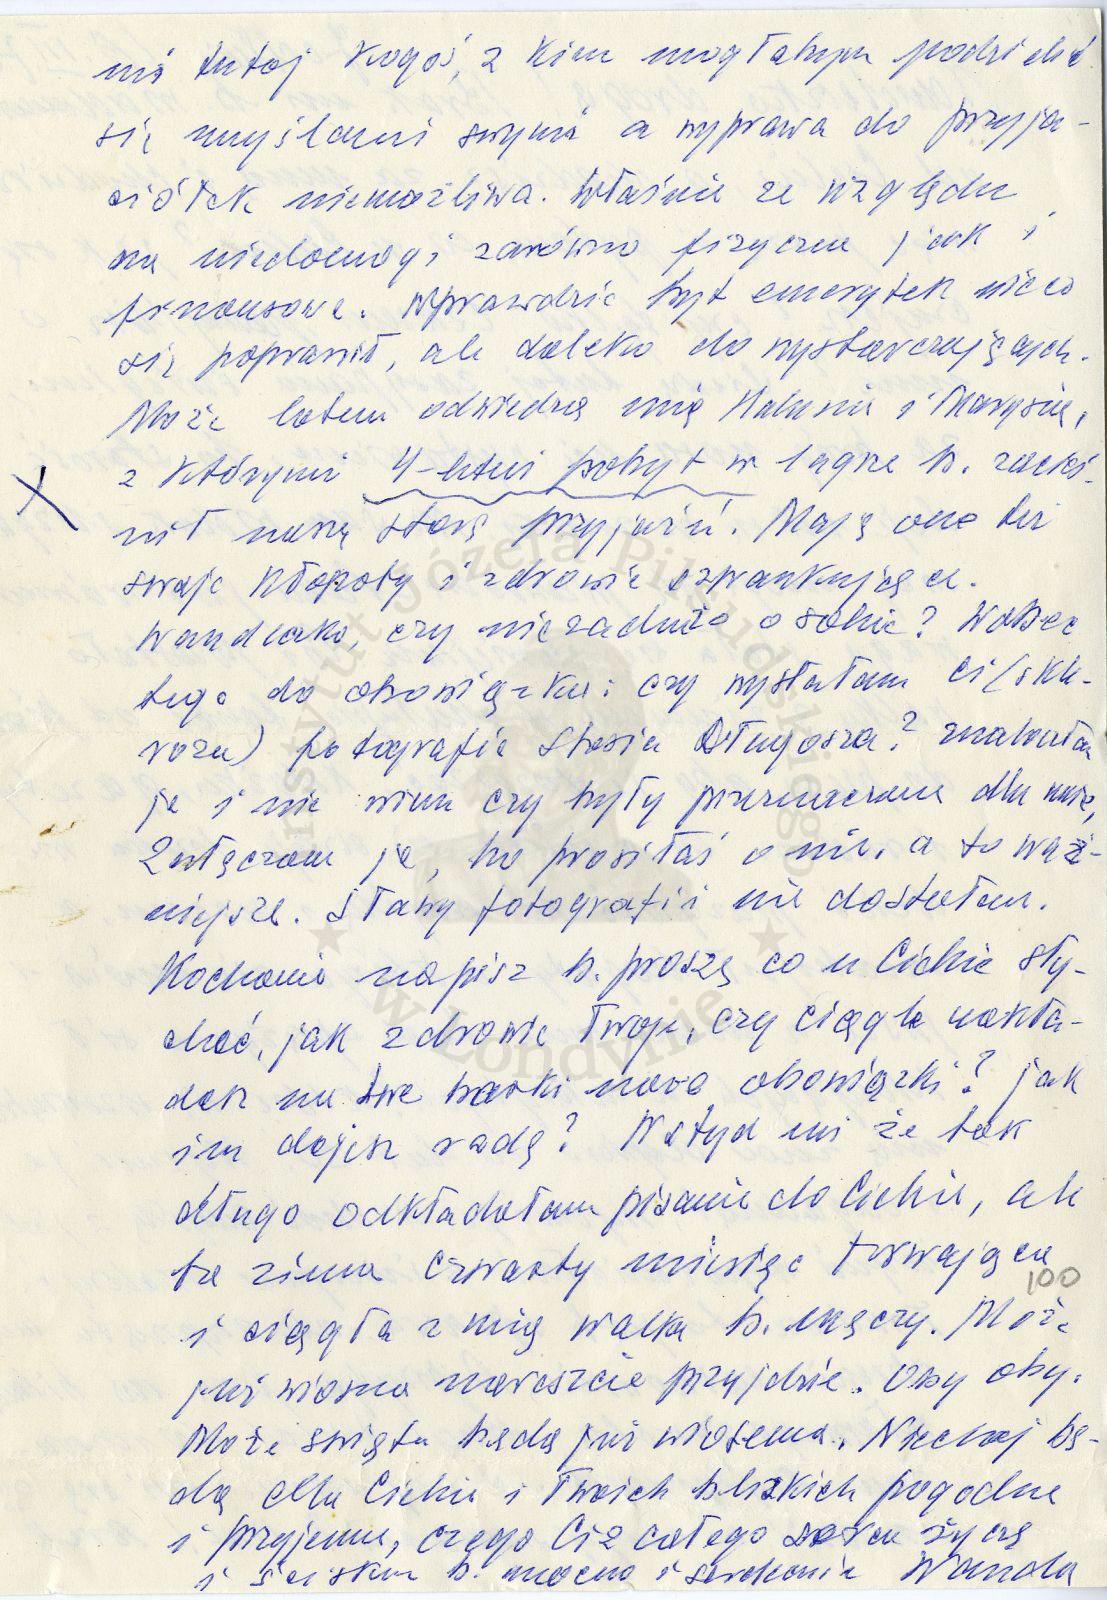 ma tutaj kogoś, z kim mogłabym podzielić
się myślami swymi a wyprawa do przyja-
ciółek niemożliwa. Właśnie ze względu
na niedomogi zarówno fizyczne jak i
finansowe. Wprawdzie byt emerytek nieco
się poprawił, ale daleko do wystarczających.
Może latem odwiedzą mię Halusia i Marysia,
z którymi 4-letni pobyt w łagrze b. zacieś-
nił naszą starą przyjaźń. Mają one też
swoje kłopoty i zdrowie szwankujące.
Wandeczko, czy nie za dużo o sobie? Wobec
tego do obowiązku: czy wysłałam Ci (skle-
roza) fotografie Stasia Długosza? Znalazłam
je i nie wiem czy były przeznaczone dla mnie,
Załączam je, bo prosiłaś o nie, a to waż-
niejsze. Sławy fotografii nie dostałam.
Kochanie napisz b. proszę co u Ciebie sły-
chać, jak zdrowie Twoje, czy ciągle nakła-
dasz na swe barki nowe obowiązki? jak
im dajesz radę? Wstyd mi że tak
długo odkładałam pisanie do Ciebie, ale
ta zima czwarty miesiąc trwająca
100
i ciągła z nią walka b. męczy. Może
już wiosna nareszcie przyjdzie. Oby oby.
Może święta będą już wiosenne. Niechaj bę-
dą dla Ciebie i Twoich bliskich pogodne
i przyjemne, czego Ci z całego serca życzę
i ściskam b. mocno i serdecznie Wanda
X
Instytut Józefa Piłsudskiego
w Londynie